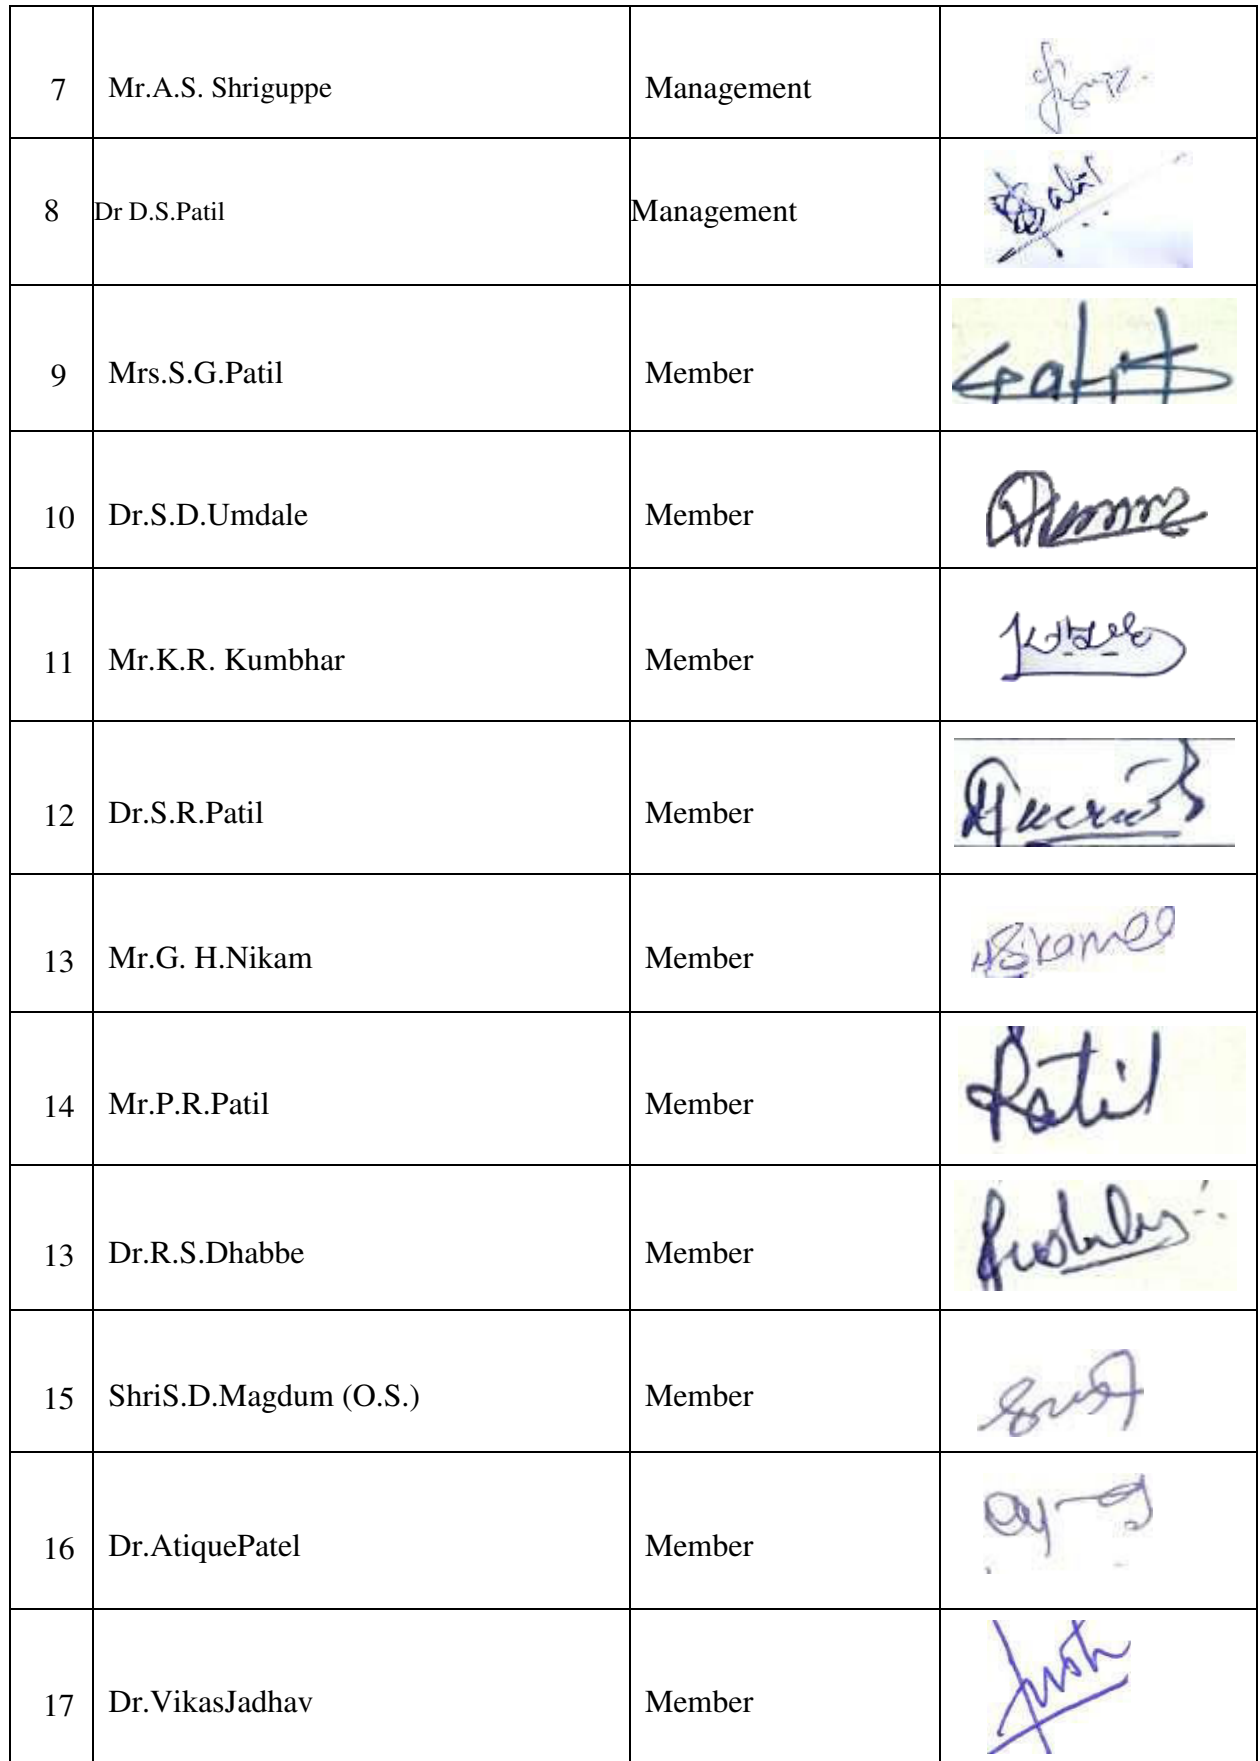 7 Mr.A.S. Shriguppe Management
8 Dr D.S.Patil Management
9 Mrs.S.G.Patil Member
10 Dr.S.D.Umdale Member
11 Mr.K.R. Kumbhar Member
12 Dr.S.R.Patil Member
13 Mr.G. H.Nikam Member
14 Mr.P.R.Patil Member Patil
13 Dr.R.S.Dhabbe Member
15 ShriS.D.Magdum (O.S.) Member
16 Dr.AtiquePatel Member
17 Dr.VikasJadhav Member